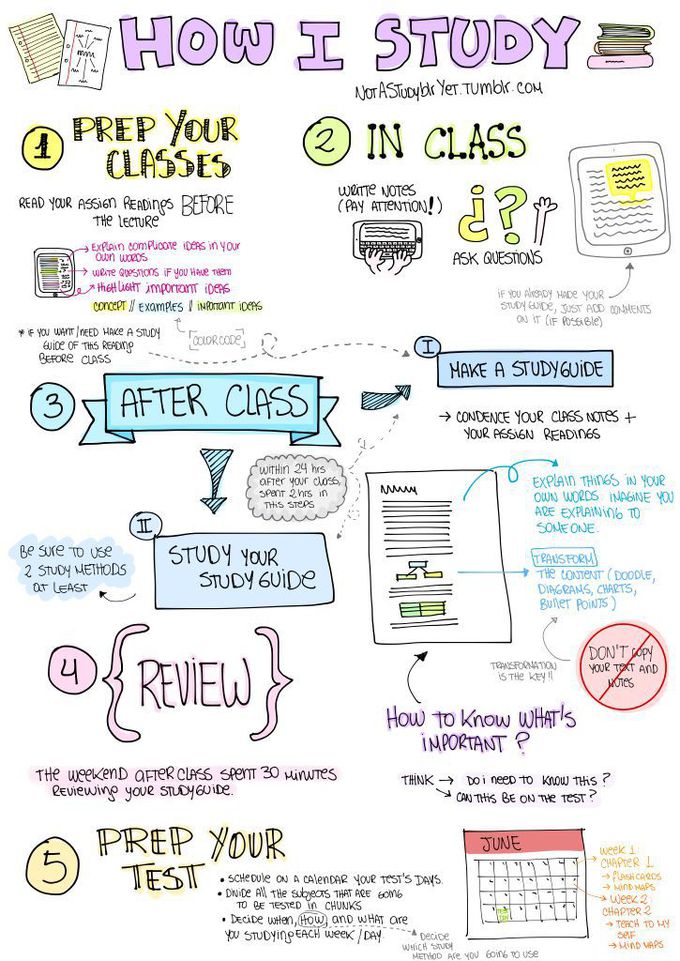 HOW I STUDY
NOTASTUDYblrYET.TUMblr.COM
1 PREP YOUR
CLASSES
READ YOUR ASSIGN READINGS BEFORE
THE LECTURE
EXPLAIN COMPLICATE IDEAS IN YOUR
OWN WORDS
WRITE QUESTIONS IF YOU HAVE THEM
HIGHLIGHT IMPORTANT IDEAS
CONCEPT // EXAMPLES // IMPORTANT IDEAS
[COLORCODE]
* IF YOU WANT/NEED MAKE A STUDY
GUIDE OF THIS READING
BEFORE CLASS
2 IN CLASS
WRITE NOTES
(PAY ATTENTION!)
¿?
ASK QUESTIONS
IF YOU ALREADY MADE YOUR
STUDY GUIDE, JUST ADD COMMENTS
ON IT (IF POSSIBLE)
3 AFTER CLASS
I
MAKE A STUDYGUIDE
→ CONDENCE YOUR CLASS NOTES +
YOUR ASSIGN READINGS
WITHIN 24 HRS
AFTER YOUR CLASS,
SPENT 2 HRS IN
THIS STEPS
II
STUDY YOUR
STUDYGUIDE
BE SURE TO USE
2 STUDY METHODS
AT LEAST
EXPLAIN THINGS IN YOUR
OWN WORDS. IMAGINE YOU
ARE EXPLAINING TO
SOMEONE.
TRANSFORM
THE CONTENT (DOODLE,
DIAGRAMS, CHARTS,
BULLET POINTS)
TRANSFORMATION
IS THE KEY!!
DON'T COPY
YOUR TEXT AND
NOTES
HOW TO KNOW WHAT'S
IMPORTANT?
THINK → DO I NEED TO KNOW THIS?
→ CAN THIS BE ON THE TEST?
4 {REVIEW}
THE WEEKEND AFTER CLASS SPENT 30 MINUTES
REVIEWING YOUR STUDYGUIDE.
5 PREP YOUR
TEST
• SCHEDULE ON A CALENDAR YOUR TEST'S DAYS.
• DIVIDE ALL THE SUBJECTS THAT ARE GOING
TO BE TESTED IN CHUNKS
• DECIDE WHEN, HOW, AND WHAT ARE
YOU STUDYING EACH WEEK / DAY.
DECIDE
WHICH STUDY
METHOD ARE YOU GOING TO USE
JUNE
WEEK 1:
CHAPTER 1
→ FLASHCARDS
→ MIND MAPS
WEEK 2:
CHAPTER 2
→ TEACH TO MY
SELF
→ MIND MAPS